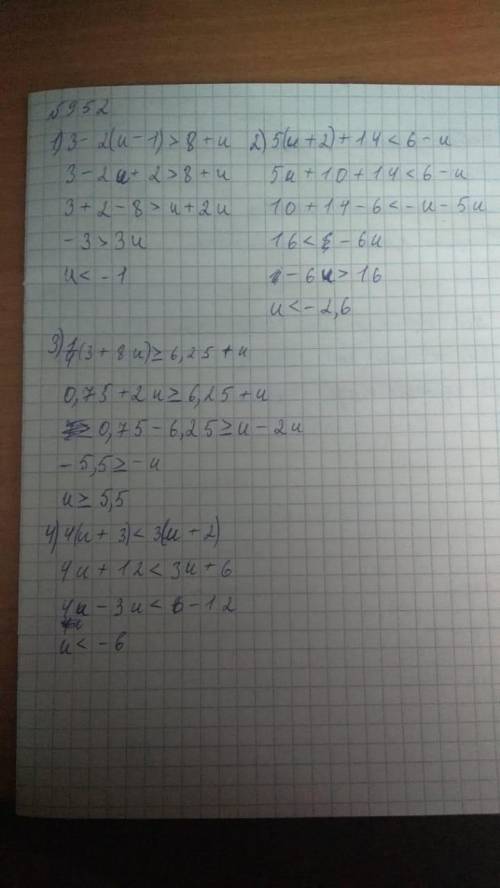 №952
1) 3 - 2(u - 1) > 8 + u
3 - 2u + 2 > 8 + u
3 + 2 - 8 > u + 2u
-3 > 3u
u < -1
2) 5(u + 2) + 14 < 6 - u
5u + 10 + 14 < 6 - u
10 + 14 - 6 < -u - 5u
16 < - 6u
- 6u > 16
u < -2,6
3) 1/4(3 + 8u) ≥ 6,25 + u
0,75 + 2u ≥ 6,25 + u
0,75 - 6,25 ≥ u - 2u
-5,5 ≥ -u
u ≥ 5,5
4) 4(u + 3) < 3(u + 2)
4u + 12 < 3u + 6
4u - 3u < 6 - 12
u < -6